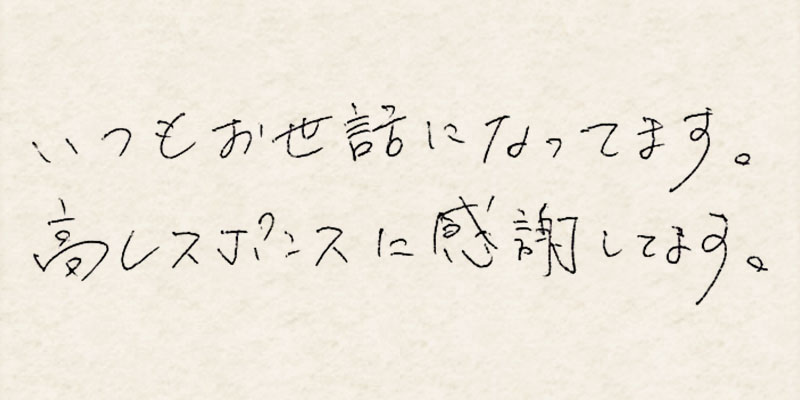 いつもお世話になってます。
高レスポンスに感謝してます。